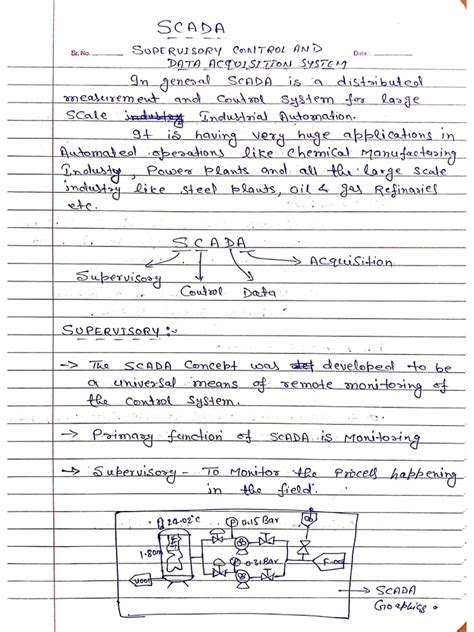 SCADA
Sr. No.
SUPERVISORY CONTROL AND
Date:
DATA ACQUISITION SYSTEM
In general SCADA is a distributed
measurement and control system for large
scale Industrial Automation.
It is having very huge applications in
Automated operations like Chemical Manufacturing
Industry, Power plants and all the large scale
industry like steel plants, oil & gas Refinaries
etc.
SCADA
Acquisition
Supervisory
Control Data
SUPERVISORY:-
→ The SCADA Concept was developed to be
a universal means of remote monitoring of
the control system.
→ Primary function of SCADA is Monitoring
→ Supervisory - To Monitor the Process happening
in the field.
24.02°c
P 0.15 Bar
1.80m
P 0.31 Bar
V001
→ SCADA
Graphics.